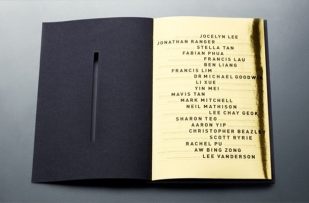 JOCELYN LEE
JONATHAN RANGER
STELLA TAN
FABIAN PHUA
FRANCIS LAU
BEN LIANG
FRANCIS LIM
DR MICHAEL GOODWIN
LI XUE
YIN MEI
MAVIS TAN
MARK MITCHELL
NEIL MATHISON
LEE CHAY GEOK
SHARON TEO
AARON YIP
CHRISTOPHER BEAZLEY
SCOTT BYRIE
RACHEL PU
AW BING ZONG
LEE VANDERSON